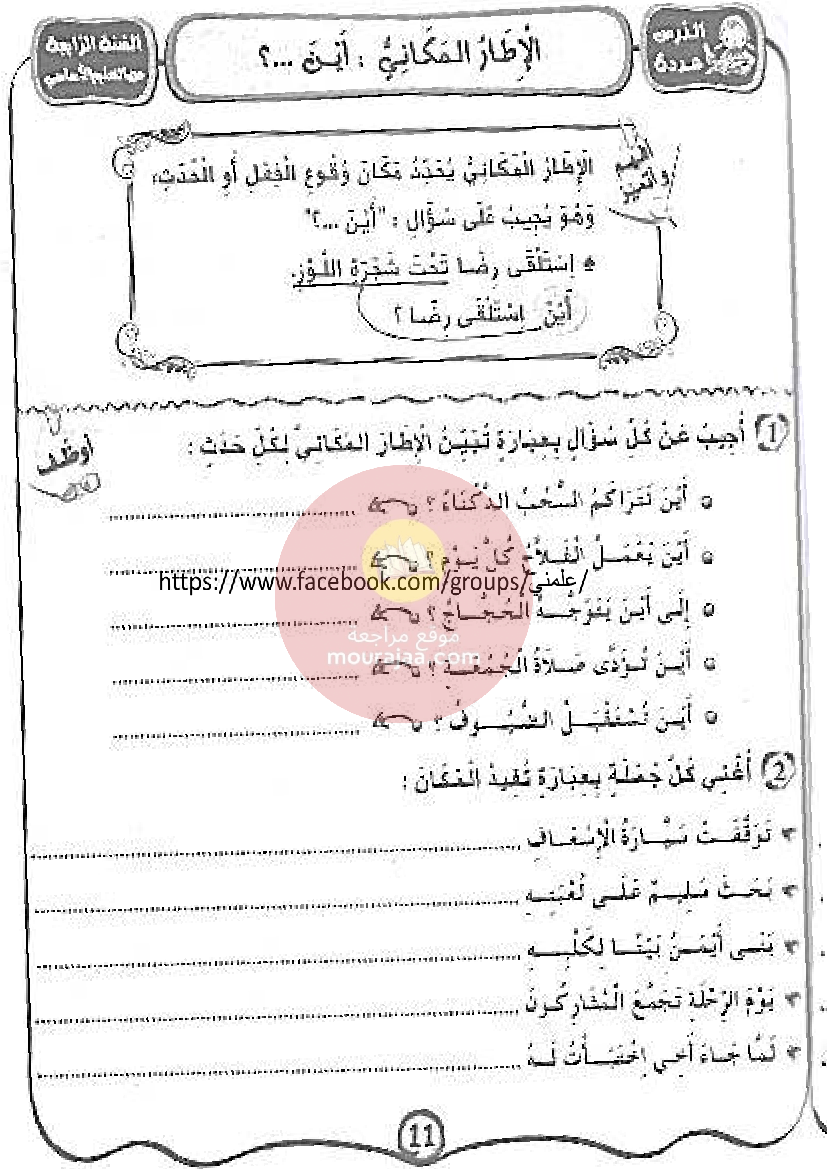 السنة الرابعة
من التعليم الأساسي
الْإِطَارُ الْمَكَانِيُّ : أَيْنَ ...؟
الدّرس
عدد:
الْإِطَارُ الْمَكَانِيُّ يُحَدِّدُ مَكَانَ وُقُوعِ الْفِعْلِ أَوِ الْحَدَثِ،
وَهُوَ يُجِيبُ عَلَى سُؤَالِ : "أَيْنَ ...؟"
* اِسْتَلْقَى رِضَا تَحْتَ شَجَرَةِ اللَّوْزِ.
أَيْنَ اِسْتَلْقَى رِضَا ؟
أوظّف
1 أُجِيبُ عَنْ كُلِّ سُؤَالٍ بِعِبَارَةٍ تُبَيِّنُ الْإِطَارَ الْمَكَانِيَّ لِكُلِّ حَدَثٍ :
○ أَيْنَ تَتَرَاكَمُ السُّحُبُ الدَّكْنَاءُ ؟ ........................
○ أَيْنَ يَعْمَلُ الْفَلَّاحُ كُلَّ يَوْمٍ ؟ ........................
https://www.facebook.com/groups/علمني/
○ إِلَى أَيْنَ يَتَوَجَّهُ الْحُجَّاجُ ؟ ........................
موقع مراجعة
mourajaa.com
○ أَيْنَ تُؤَدَّى صَلَاةُ الْجُمُعَةِ ؟ ........................
○ أَيْنَ نَسْتَقْبِلُ الضُّيُوفَ ؟ ........................
2 أُغْنِي كُلَّ جُمْلَةٍ بِعِبَارَةٍ تُفِيدُ الْمَكَانَ :
تَوَقَّفَتْ سَيَّارَةُ الْإِسْعَافِ ........................
بَحَثَ سَلِيمٌ عَلَى لُعْبَتِهِ ........................
بَنَى أَيْمَنُ بَيْتًا لِكَلْبِهِ ........................
يَوْمَ الرِّحْلَةِ تَجَمَّعَ الْمُشَارِكُونَ ........................
لَمَّا جَاءَ أَخِي اِخْتَبَأْتُ لَهُ ........................
11